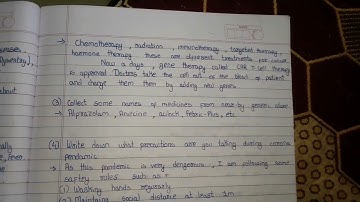 → Chemotherapy, radiation, immunotherapy, targeted therapy,
hormone therapy these are different treatments for cancer.
Now a days, gene therapy called CAR T-cell therapy
is approved. Doctors take the cell out of the blood of patient
and change them by adding new genes.
(3) Collect some names of medicines from near by generic store
→ Alprazolam, Aciloc, Febrex-Plus, etc
(4) Write down what precautions are you taking during corona
pandamic.
→ As this pandemic is very dangerous, I am following some
saftey rules such as :
(1) Washing hands regularly
(2) Maintaining social distance at least 1m
about